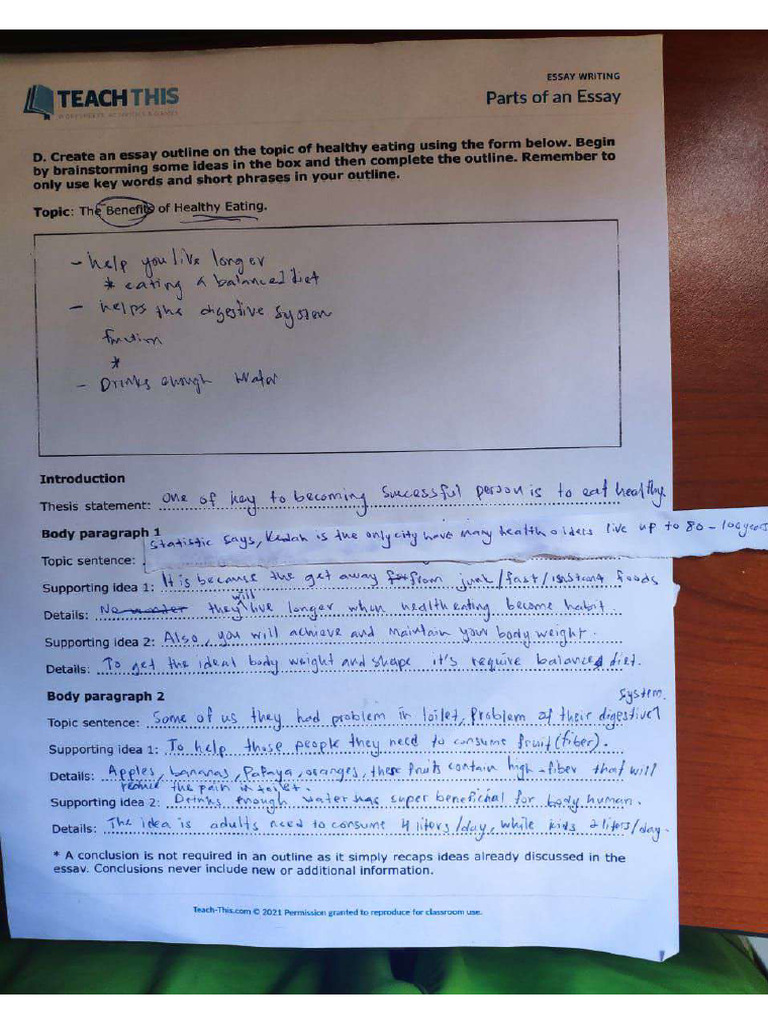 ESSAY WRITING
TEACHTHIS
Parts of an Essay
D. Create an essay outline on the topic of healthy eating using the form below. Begin
by brainstorming some ideas in the box and then complete the outline. Remember to
only use key words and short phrases in your outline.
Topic: The Benefits of Healthy Eating.
- help you live longer
* eating a balanced diet
- helps the digestive system
function
*
- Drinks enough water
Introduction
Thesis statement: One of key to becoming successful person is to eat healthy.
Body paragraph 1
Statistic says, Kedah is the only city have many health olders live up to 80 - 100 years
Topic sentence:
Supporting idea 1: It is because the get away from junk/fast/instant foods
Details: they will live longer when health eating become habit.
Supporting idea 2: Also, you will achieve and maintain your body weight.
Details: To get the ideal body weight and shape it's require balanced diet.
Body paragraph 2
Topic sentence: Some of us they had problem in toilet, Problem of their digestive system.
Supporting idea 1: To help those people they need to consume fruit (fiber).
Details: Apples, bananas, Papaya, oranges, these fruits contain high-fiber that will
reduce the pain in toilet.
Supporting idea 2: Drinks enough water has super beneficial for body human.
Details: The idea is adults need to consume 4 liters/day, while kids 2 liters/day.
* A conclusion is not required in an outline as it simply recaps ideas already discussed in the
essay. Conclusions never include new or additional information.
Teach-This.com © 2021 Permission granted to reproduce for classroom use.